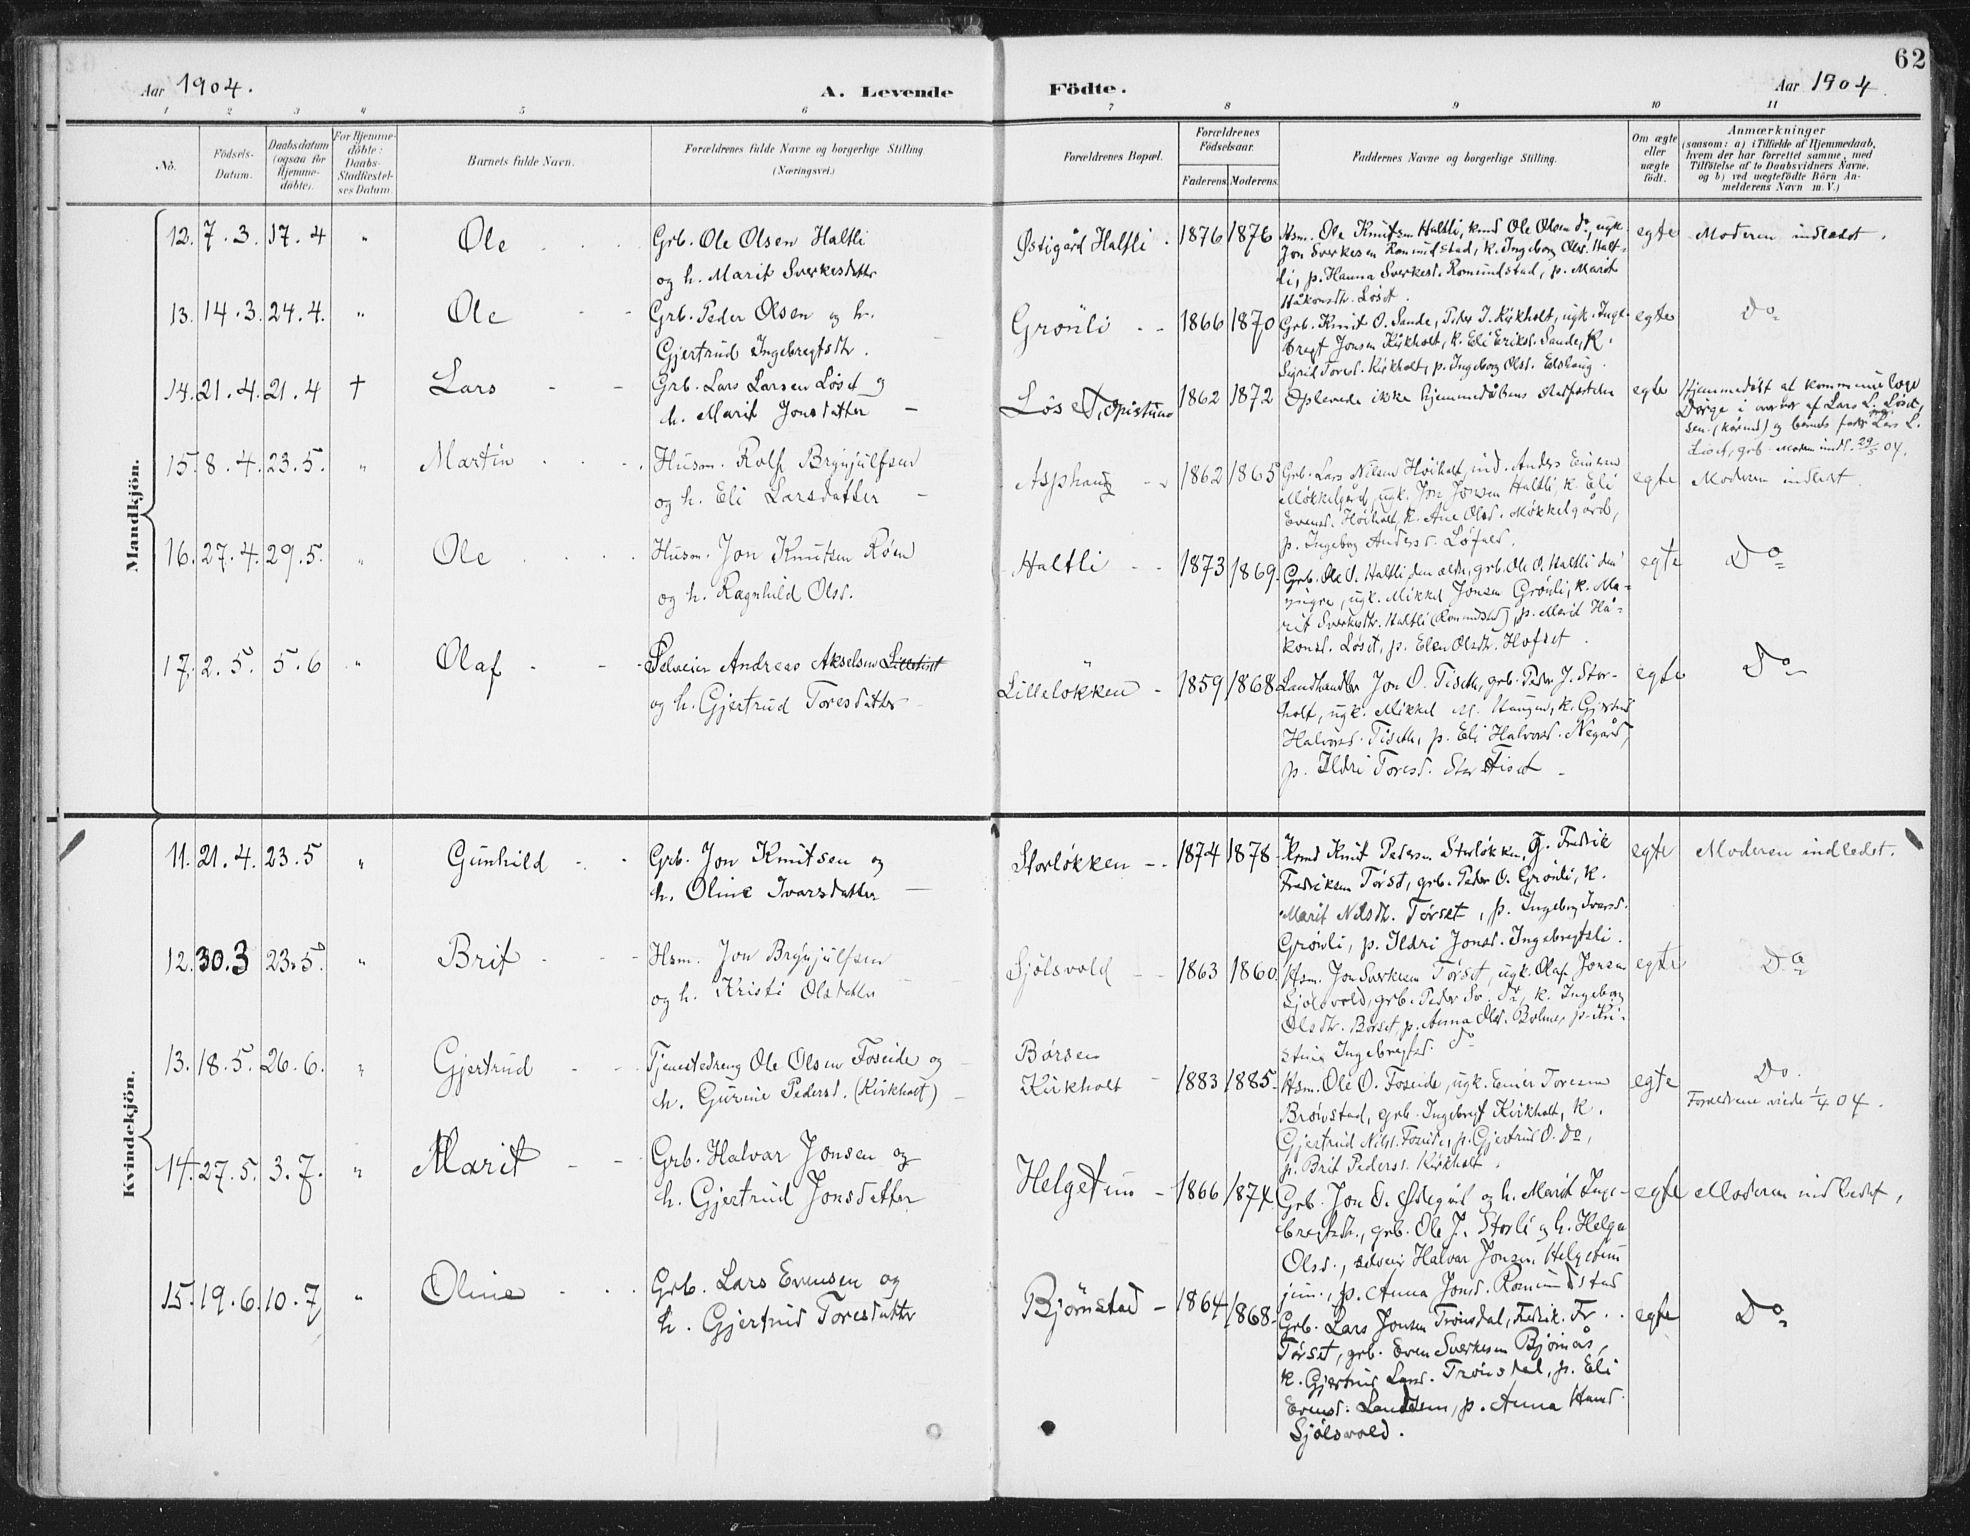 62
Aar 1904. A. Levende Födte. Aar 1904.
1 2 3 4 5 6 7 8 9 10 11
No.
Födsels-
Datum.
Daabsdatum
(ogsaa for
Hjemme-
döbte).
For Hjemme-
döbte:
Daabs-
Stadfæstel-
ses Datum.
Barnets fulde Navn.
Forældrenes fulde Navne og borgerlige Stilling
(Næringsvei.)
Forældrenes Bopæl.
Forældrenes
Födselsaar.
Faderens. Moderens.
Faddernes Navne og borgerlige Stilling.
Om ægte
eller
uægte
födt.
Anmærkninger
(saasom: a) i Tilfælde af Hjemmedaab,
hvem der har forrettet samme, med
Tilföielse af to Daabsvidners Navne,
og b) ved uægtefödte Börn An-
melderens Navn m. V.)
Mandkjön.
12. 7.3. 17.4 " Ole
Grb. Ole Olsen Haltli
og h. Marit Sverkesdatter
Østigård Haltli. 1876 1876
Hsm. Ole Knutsen Haltli, kmd Ole Olsen do, ugk.
Jon Sverkesen Romundstad, k. Ingeborg Olsd. Halt-
li, p. Hanna Sverkesd. Romundstad, p. Marit
Håkonsdtr. Løset.
egte Moderen indledet.
13. 14.3. 24.4. " Ole
Grb. Peder Olsen og h.
Gjertrud Ingebregtsdtr.
Grønli 1866 1870
Grb. Knut O. Sande, Peder J. Kirkholt, ugk. Inge-
bregt Jonsen Kirkholt, k. Eli Eriksd. Sande, k.
Sigrid Toresd. Kirkholt, p. Ingeborg Olsd.
egte Do
14. 21.4. 21.4 † Lars
Grb. Lars Larsen Løset og
h. Marit Jonsdatter
Løset, 1862 1872
Oplevede ikke hjemmedåbens stadfæstelse
egte Hjemmedøbt af kommunelæge
Dørge i overvær af Lars L. Løset,
sen. (kårmd) og barnets fader Lars L.
Løset, grb. Moderen indl. 29/5 04.
15. 8.4. 23.5. " Martin
Husm. Rolf Brynjulfsen
og h. Eli Larsdatter
Asphaug 1862 1865
Grb. Lars Nilsen Høiholt, ind. Anders Einersen
Møkkelgård, ugk. Jon Jonsen Haltli, k. Eli
Evensd. Høiholt, k. Ane Olsd. Møkkelgård,
p. Ingeborg Andersd. Løfald.
egte Moderen indledt.
16. 27.4. 29.5. " Ole
Husm. Jon Knutsen Røen
og h. Ragnhild Olsd.
Haltli 1873 1869.
Grb. Ole O. Haltli den ældre, grb. Ole O. Haltli den
yngre, ugk. Mikkel Jonsen Grönli, k. Ma-
rit Sverkesdtr. Haltli (Romundstad), p. Marit Hå-
konsd. Løset, p. Elen Olsdtr. Hofset.
egte Do
17. 2.5. 5.6 " Olaf
Selveier Andreas Akselsen
og h. Gjertrud Toresdatter
Lilleløkken 1859 1868
Landhandler Jon O. Tiseth, grb. Peder J. Stor-
holt, ugk. Mikkel M. Haugen, k. Gjertrud
Halvorsd. Tiseth, p. Eli Halvorsd. Negård,
p. Ildri Toresd. Stor Tiset
egte Do
Kvindekjön.
11. 21.4. 23.5 " Gunhild
Grb. Jon Knutsen og
h. Oline Ivarsdatter
Storløkken 1874 1878
Kmd Knut Pedersen Storløkken, G. Fredrik
Fredriksen Tørset, grb. Peder O. Grønli, k.
Marit Nilsdtr. Tørset, p. Ingeborg Ivarsd.
Grønli, p. Ildri Jonsd. Ingebregtsli.
egte Moderen indledet.
12. 30.3 23.5. " Brit
Hsm. Jon Brynjulfsen
og h. Kristi Olsdatter
Sjølsvold 1863 1860.
Hsm. Jon Sverkesen Tørset, ugk. Olaf Jonsen
Sjølsvold, grb. Peder Sv. do, k. Ingeborg
Olsdtr. Børset, p. Anna Olsd. Bolme, p. Kri-
stine Ingebregtsd. do
egte Do
13. 18.5. 26.6. " Gjertrud
Tjenestedreng Ole Olsen Foseide og
h. Gurine Pedersd. (Kirkholt)
Børsen
Kirkholt 1883 1885.
Hsm. Ole O. Foseide, ugk. Einer Toresen
Brøvstad, grb. Ingebregt Kirkholt, k.
Gjertrud Nilsd. Foseide, p. Gjertrud O. do,
p. Brit Pedersd. Kirkholt.
egte Do.
Forældrene viede 1/4 04.
14. 27.5. 3.7. " Marit
Grb. Halvar Jonsen og
h. Gjertrud Jonsdatter
Helgetun 1866 1874.
Grb. Jon O. Ødegård og h. Marit Inge-
bregtsdtr., grb. Ole J. Storli og h. Helga
Olsd., selveier Halvar Jonsen Helgetun
jun., p. Anna Jonsd. Romundstad
egte Moderen indledet,
15. 19.6. 10.7 " Oline
Grb. Lars Evensen og
h. Gjertrud Toresdatter
Bjørnstad 1864 1868.
Grb. Lars Jonsen Trønsdal, Fredrik Fr.
Tørset, grb. Even Sverkesen Bjørnås,
k. Gjertrud Larsd. Trønsdal, p. Eli
Evensd. p. Anna Hansd.
Sjølsvold.
egte Do